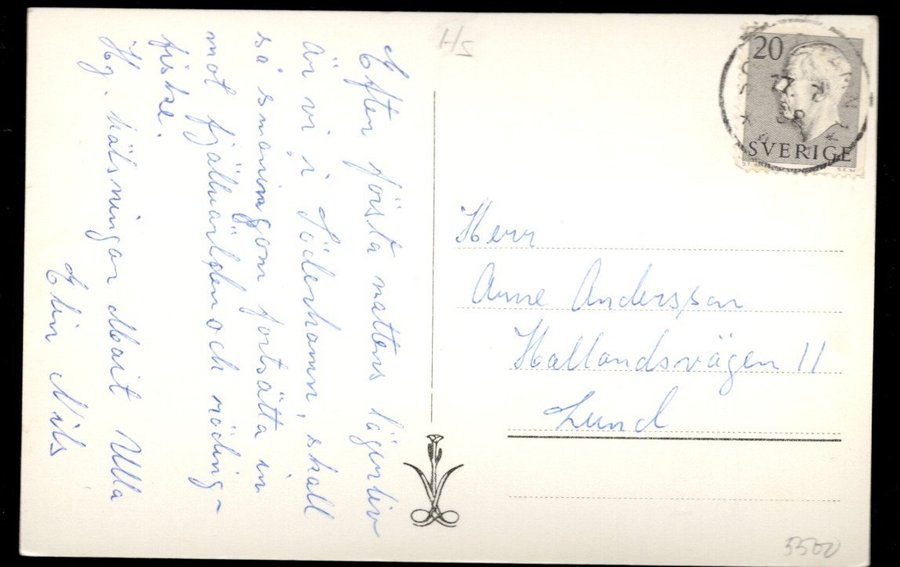 Efter första nattens lägerliv
är vi i Söderhamn, skall
så småningom fortsätta in
mot fjällvärlden och röding-
fiske.
Hj. hälsningar Mait Ulla
Elin Nils
H/S
20
SVERIGE
Herr
Arne Andersson
Hallandsvägen 11
Lund
5500